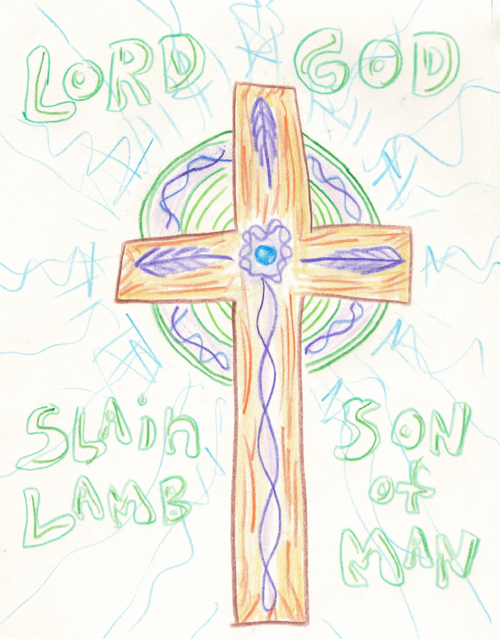 LORD GOD
SLAin
LAMB
SON
of
MAN